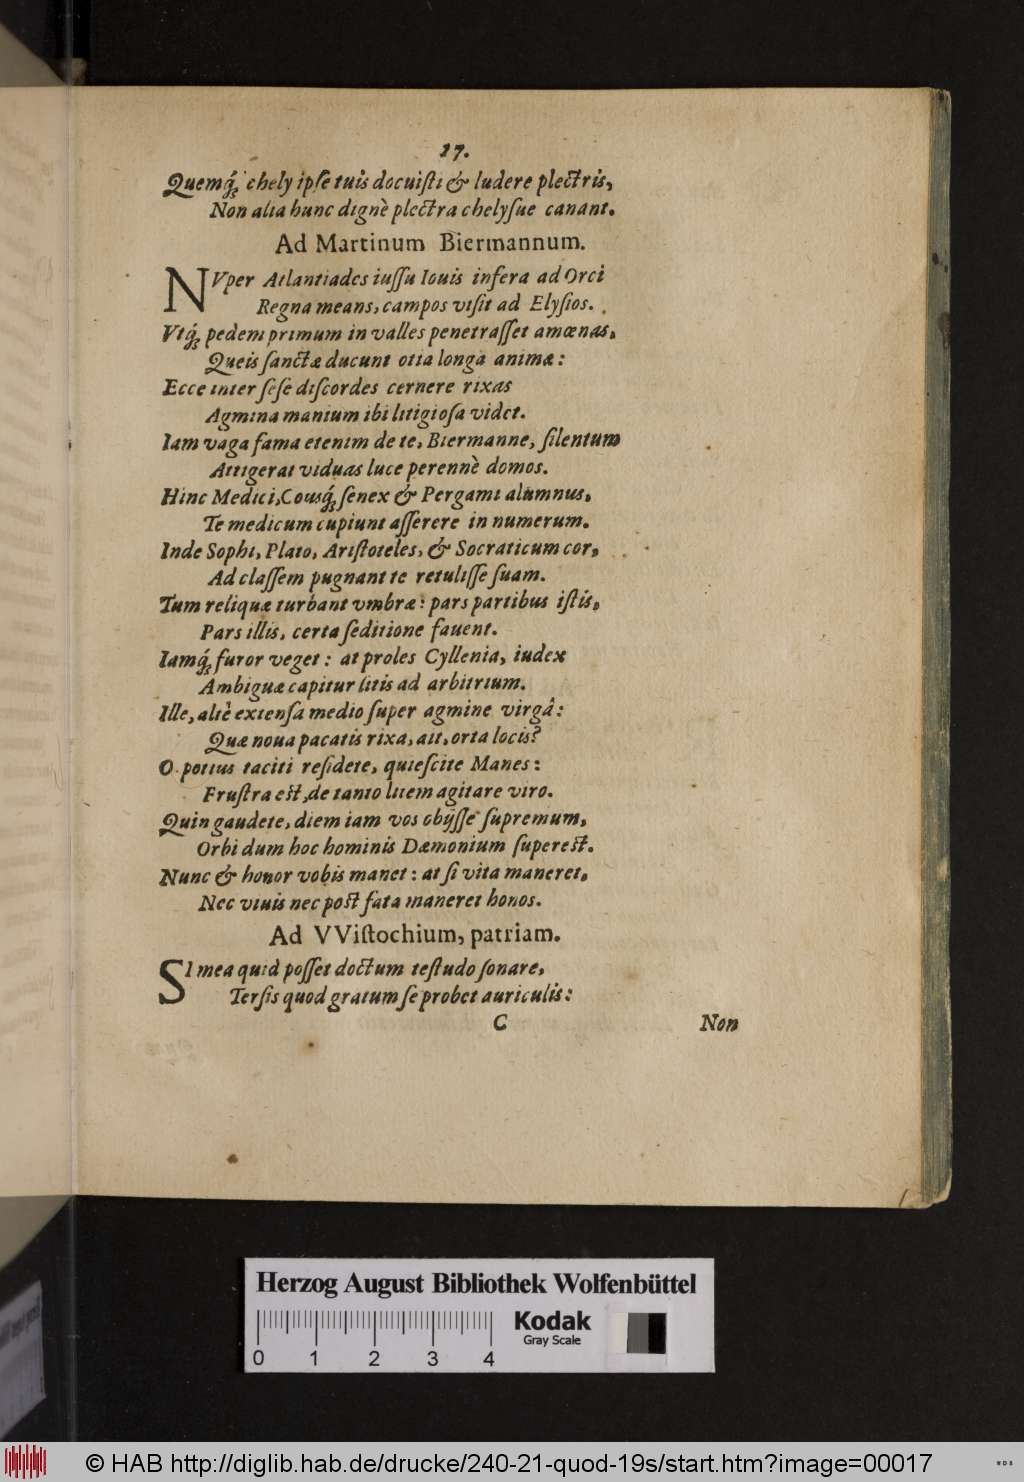 17.
Quemq́ꝫ chely ipſe tuis docuiſti & ludere plectris,
Non alia hunc dignè plectra chelyſue canant.
Ad Martinum Biermannum.
NVper Atlantiades iuſſu Iouis infera ad Orci
Regna means, campos viſit ad Elyſios.
Vtq́ꝫ pedem primum in valles penetraſſet amœnas,
Queis ſanctæ ducunt otia longa animæ:
Ecce inter ſeſe diſcordes cernere rixas
Agmina manium ibi litigioſa videt.
Iam vaga fama etenim de te, Biermanne, ſilentum
Attigerat viduas luce perennè domos.
Hinc Medici, Cousq́ꝫ ſenex & Pergami alumnus,
Te medicum cupiunt aſſerere in numerum.
Inde Sophi, Plato, Ariſtoteles, & Socraticum cor,
Ad claſſem pugnant te retuliſſe ſuam.
Tum reliquæ turbant vmbræ: pars partibus iſtis,
Pars illis, certa ſeditione fauent.
Iamq́ꝫ furor veget: at proles Cyllenia, iudex
Ambiguæ capitur litis ad arbitrium.
Ille, altè extenſa medio ſuper agmine virgâ:
Quæ noua pacatis rixa, ait, orta locis?
O potius taciti reſidete, quieſcite Manes:
Fruſtra eſt, de tanto litem agitare viro.
Quin gaudete, diem iam vos obijſſe ſupremum,
Orbi dum hoc hominis Dæmonium ſupereſt.
Nunc & honor vobis manet: at ſi vita maneret,
Nec viuis nec poſt fata maneret honos.
Ad VViſtochium, patriam.
SI mea quid poſſet doctum teſtudo ſonare,
Terſis quod gratum ſe probet auriculis:
C Non
Herzog August Bibliothek Wolfenbüttel
Kodak
Gray Scale
0 1 2 3 4
© HAB http://diglib.hab.de/drucke/240-21-quod-19s/start.htm?image=00017